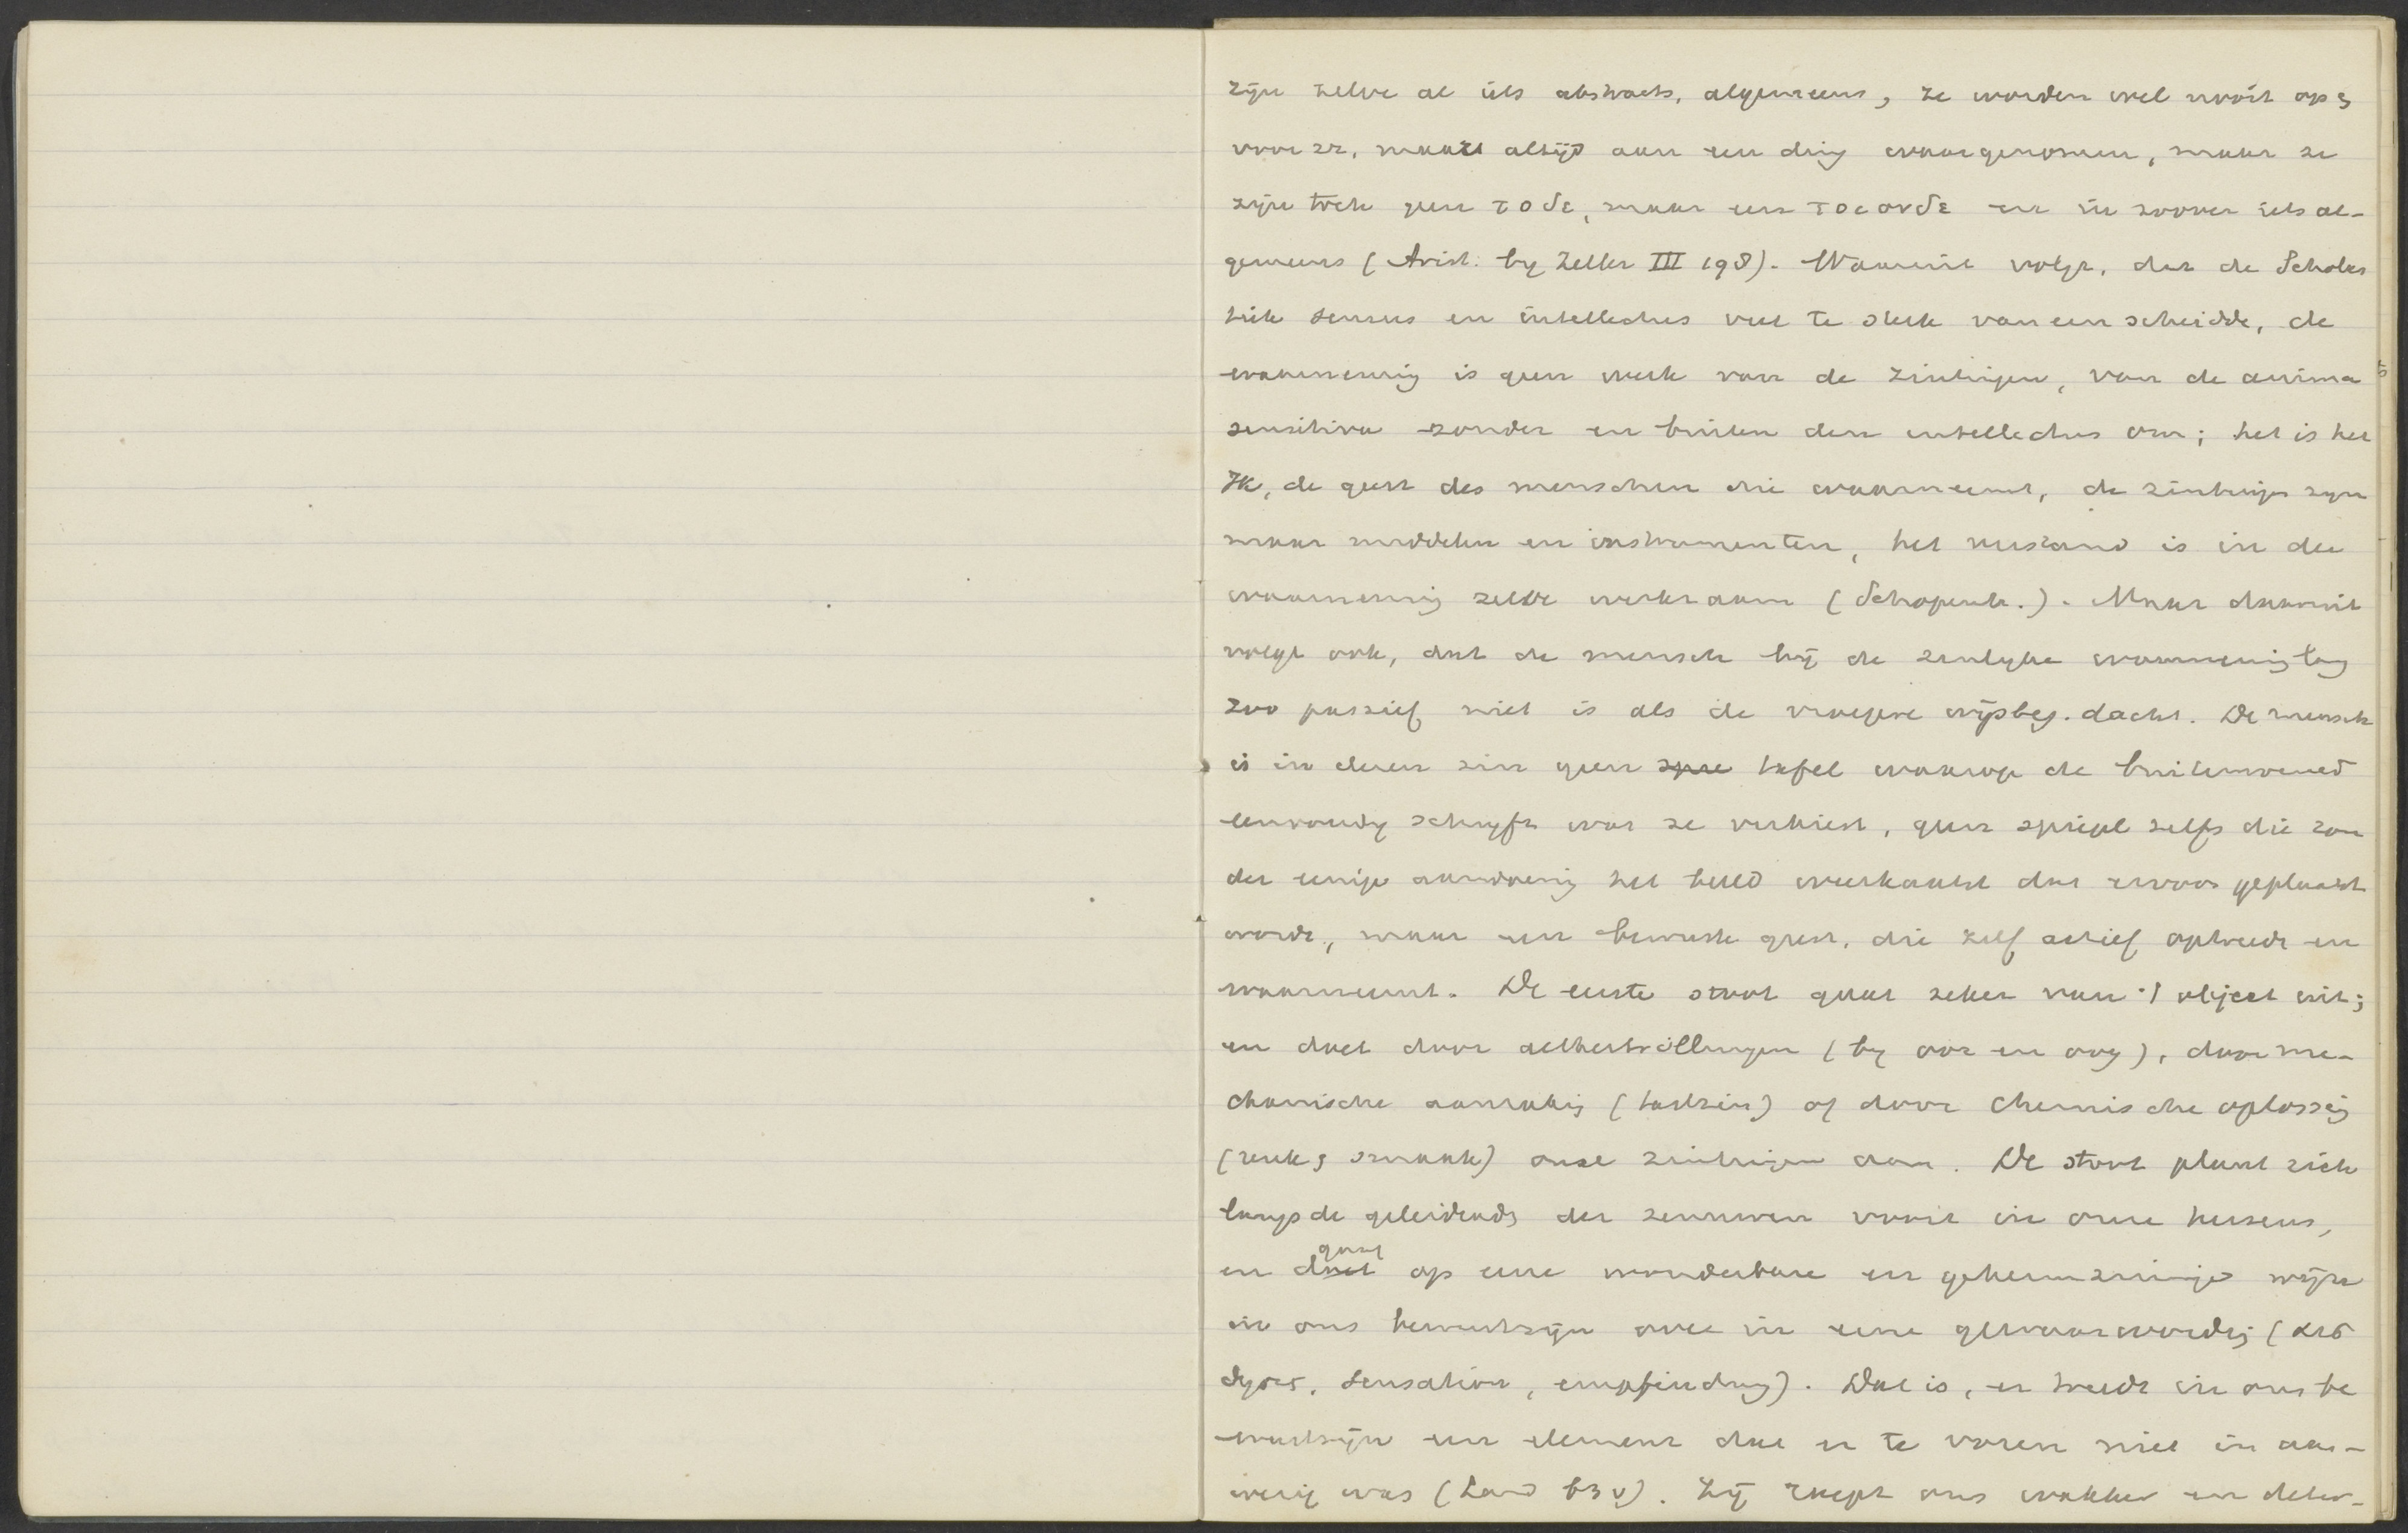 zijn zelve al iets abstracts, algemeens, ze worden wel nooit op &
voor zz, maar altijd aan een ding waargenomen, maar ze
zijn toch geen τοδε, maar een τοιονδε en in zoover iets al-
gemeens (Arist. by Zeller III 198). Waaruit volgt, dat de Scholas
tiek sensus en intellectus veel te sterk van een scheidde, de
waarneming is geen werk van de zintuigen, van de anima
sensitiva zonder en buiten den intellectus om; het is het
Ik, de geest des menschen die waarneemt, de zintuigen zyn
maar middelen en instrumenten, het verstand is in de
waarneming zelve werkzaam (Schopenh.). Maar daaruit
volgt ook, dat de mensch bij de zinlyke waarneming lang
zoo passief niet is als de vroegere wijsbeg. dacht. De mensch
is in dezen zin geen spie tafel waarop de buitenwereld
eenvoudig schryft wat ze verkiest, geen spiegel zelfs die zon
der eenige aandoening het beeld weerkaatst dat ervoor geplaatst
wordt, maar een bewuste geest, die zelf actief optreedt en
waarneemt. De eerste stoot gaat zeker van 't object uit;
en doet door aethertrillingen (by oor en oog), door me-
chanische aanraking (tastzin) of door chemische oplossing
(reuk & smaak) onze zintuigen aan. De stoot plant zich
langs de geleidends der zenuwen voort in onze hersens,
gaat
en doet op eene wonderbare en geheimzinnige wijze
in ons bewustzijn over in eene gewaarwording (αισ
θησις, sensation, empfindung). Dat is, er treedt in ons be
wustzijn een element dat er te voren niet in aan-
wezig was (Land 63 v). Zij roept ons wakker en deter-